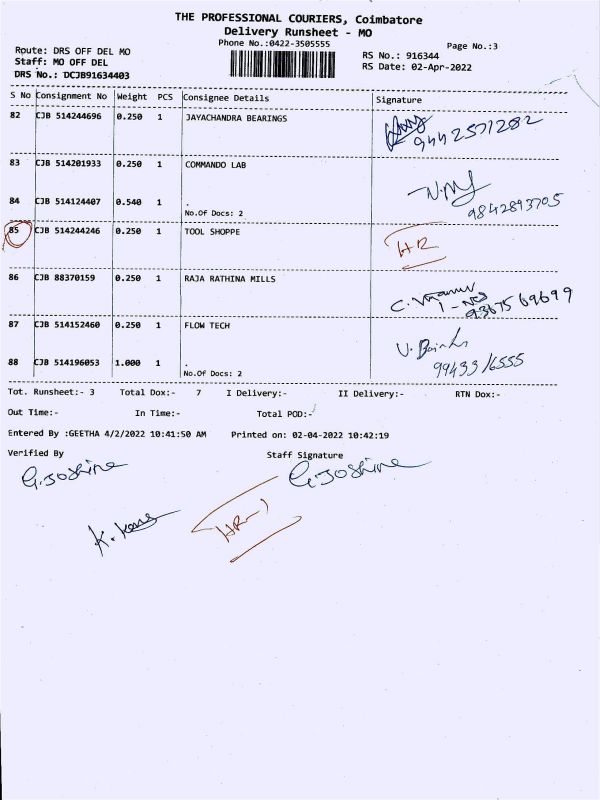 THE PROFESSIONAL COURIERS, Coimbatore
Delivery Runsheet - MO
Phone No.:0422-3505555
Page No.:3
Route: DRS OFF DEL MO
Staff: MO OFF DEL
DRS No.: DCJB91634403
RS No.: 916344
RS Date: 02-Apr-2022
S No Consignment No Weight PCS Consignee Details Signature
82 CJB 514244696 0.250 1 JAYACHANDRA BEARINGS
9442571282
83 CJB 514201933 0.250 1 COMMANDO LAB
84 CJB 514124407 0.540 1 .
No.Of Docs: 2
9842893705
85 CJB 514244246 0.250 1 TOOL SHOPPE HR
86 CJB 88370159 0.250 1 RAJA RATHINA MILLS
9367569699
87 CJB 514152460 0.250 1 FLOW TECH
99433 16555
88 CJB 514196053 1.000 1 .
No.Of Docs: 2
Tot. Runsheet:- 3 Total Dox:- 7 I Delivery:- II Delivery:- RTN Dox:-
Out Time:- In Time:- Total POD:-
Entered By :GEETHA 4/2/2022 10:41:50 AM Printed on: 02-04-2022 10:42:19
Verified By Staff Signature
G.Joshine G.Joshine
HR-1